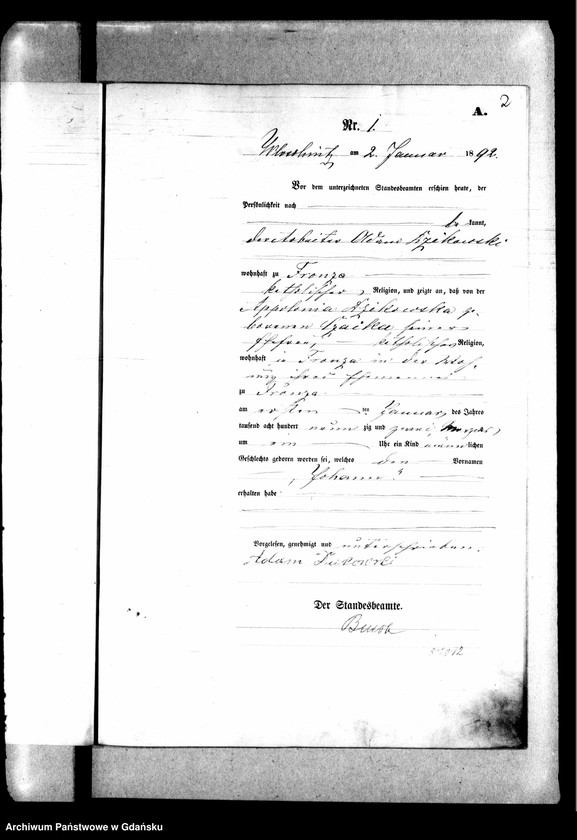 2
A.
Nr. 1.
am 2. Januar 1892.
Vor dem unterzeichneten Standesbeamten erschien heute, der
Persönlichkeit nach
kannt,
der Arbeiter Adam
wohnhaft zu Fronza
katholischer Religion, und zeigte an, daß von der
Appolonia ge-
borenen seiner
Ehefrau, katholischer Religion,
wohnhaft zu Fronza in der Woh-
nung ihres
zu Fronza
am ersten ten Januar, des Jahres
tausend acht hundert neun zig und zwei, Morgens,
um ein Uhr ein Kind männlichen
Geschlechts geboren worden sei, welches den Vornamen
Johann
erhalten habe
Vorgelesen, genehmigt und unterschrieben.
Adam
Der Standesbeamte.
Archiwum Państwowe w Gdańsku